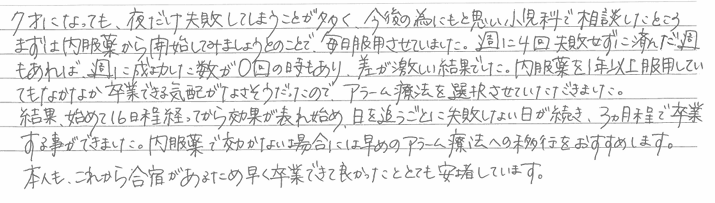 7才になっても、夜だけ失敗してしまうことが多く、今後の為にもと思い小児科で相談したところ
まずは内服薬から開始してみましょうとのことで、毎日服用させていました。週に4回失敗せずに済んだ週
もあれば、週に成功した数が0回の時もあり、差が激しい結果でした。内服薬を1年以上服用してい
てもなかなか卒業できる気配がなさそうだったので、アラーム療法を選択させていただきました。
結果、始めて16日程経ってから効果が表れ始め、日を追うごとに失敗しない日が続き、3ヵ月程で卒業
する事ができました。内服薬で効かない場合には早めのアラーム療法への移行をおすすめします。
本人も、これから合宿があるため早く卒業できて良かったととても安堵しています。